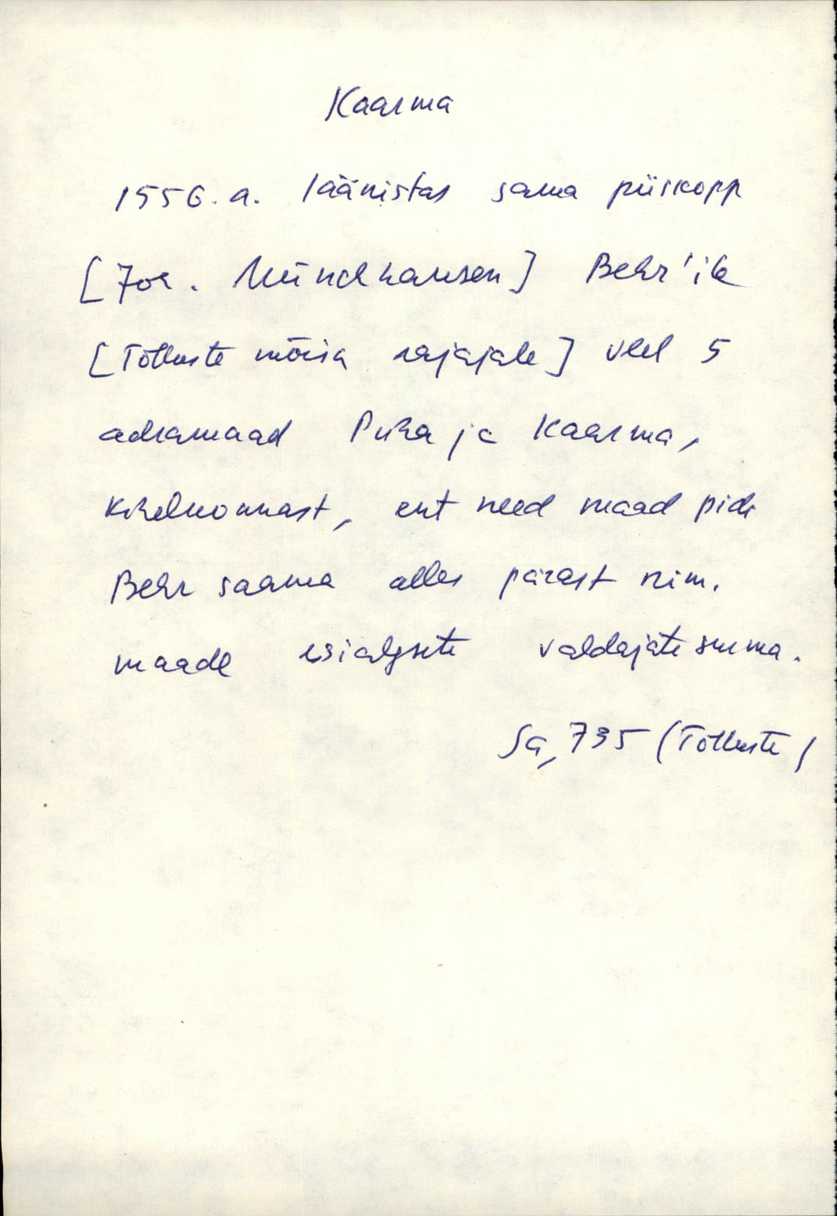 Kaarma
1556. a. läänistas sama piiskopp
[Joh. Münchhausen] Behr'ile
[Tõlluste mõisa rajajale] veel 5
adramaad Püha ja Kaarma,
kihelkonnast, ent need maad pidi
Behr saama alles pärast nim.
maade esialgsete valdajate surma.
Sa, 735 (Tõlluste)